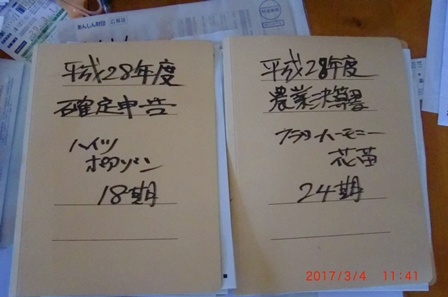 平成28年度
確定申告
ハイツ
18期
平成28年度
農業決算書
フラワーハーモニー
花苗
24期
2017/3/4 11:41